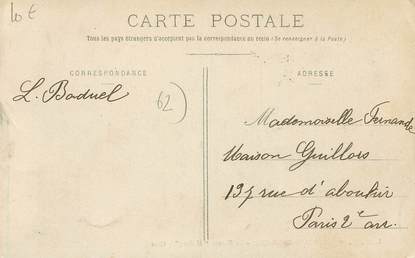 10 €
CARTE POSTALE
Tous les pays étrangers n'acceptent pas la correspondance au recto (Se renseigner à la Poste)
CORRESPONDANCE
ADRESSE
L. Baduel
62
Mademoiselle Fernande
Maison Guillois
137 rue d'aboukir
Paris 2e arr.